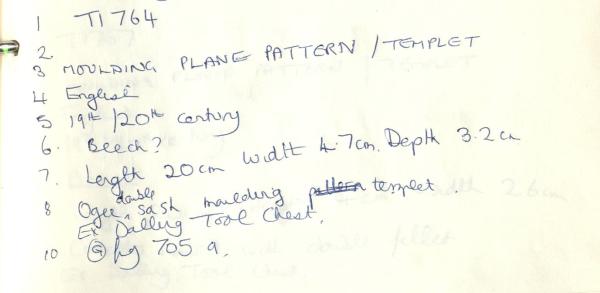 1 TI 764
2.
3 MOULDING PLANE PATTERN / TEMPLET
4 English
5 19th / 20th century
6. Beech?
7. Length 20cm Width 4.7cm. Depth 3.2cm
8 Ogee double sash moulding pattern templet.
Ex Dalling Tool Chest.
10 G pg 705 a.